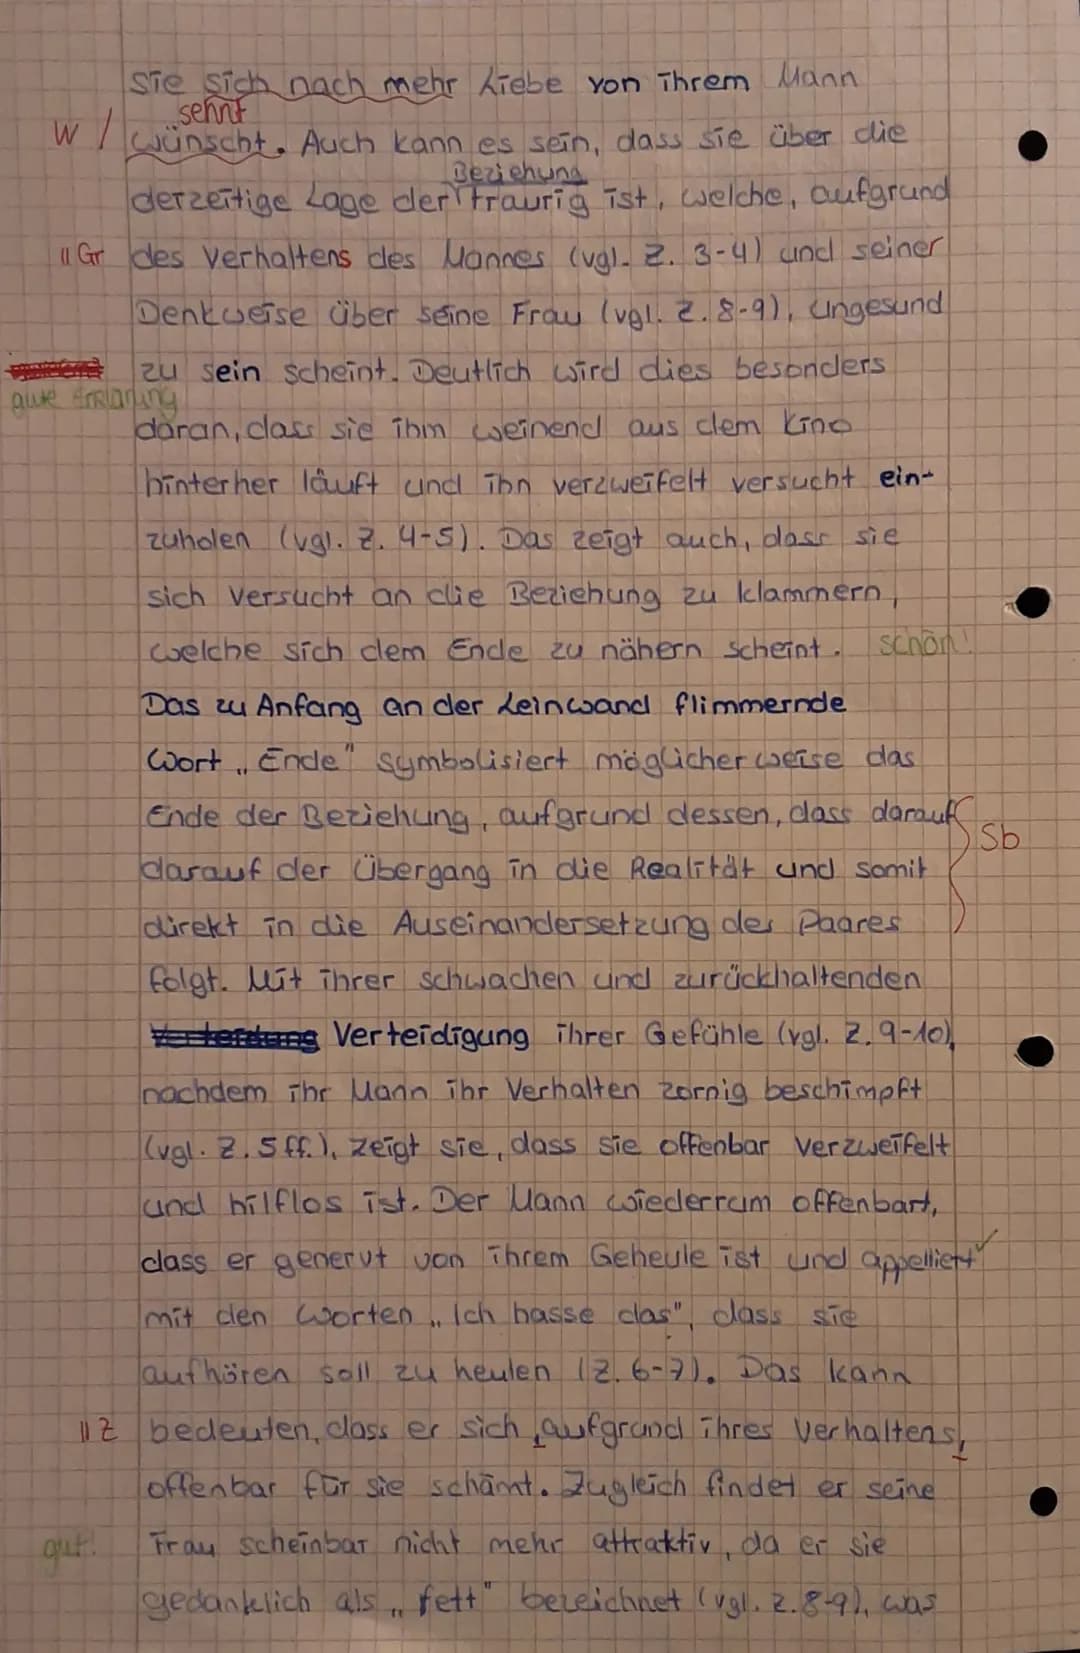 sie sich nach mehr Liebe von ihrem Mann
sehnt
W / wünscht. Auch kann es sein, dass sie über die
Beziehung
derzeitige Lage der traurig ist, welche, aufgrund
II Gr des Verhaltens des Mannes (vgl. Z. 3-4) und seiner
Denkweise über seine Frau (vgl. Z. 8-9), ungesund
zu sein scheint. Deutlich wird dies besonders
gute Erklärung
daran, dass sie ihm weinend aus dem Kino
hinterher läuft und ihn verzweifelt versucht ein-
zuholen (vgl. Z. 4-5). Das zeigt auch, dass sie
sich versucht an die Beziehung zu klammern,
welche sich dem Ende zu nähern scheint. schön!
Das zu Anfang an der Leinwand flimmernde
Wort „Ende" symbolisiert möglicherweise das
Ende der Beziehung, aufgrund dessen, dass darauf
Sb
darauf der Übergang in die Realität und somit
direkt in die Auseinandersetzung des Paares
folgt. Mit ihrer schwachen und zurückhaltenden
Verteidigung ihrer Gefühle (vgl. Z. 9-10),
nachdem ihr Mann ihr Verhalten zornig beschimpft
(vgl. Z. 5 ff.), zeigt sie, dass sie offenbar verzweifelt
und hilflos ist. Der Mann wiederrum offenbart,
dass er genervt von ihrem Geheule ist und appelliert
mit den Worten „Ich hasse das", dass sie
aufhören soll zu heulen (Z. 6-7). Das kann
II Z bedeuten, dass er sich, aufgrund ihres Verhaltens,
offenbar für sie schämt. Zugleich findet er seine
gut! Frau scheinbar nicht mehr attraktiv, da er sie
gedanklich als „fett" bezeichnet (vgl. Z. 8-9), was